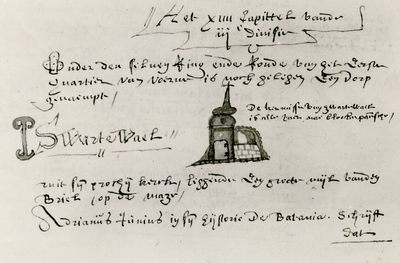 Het XIIII Capittel vande
iij Divisie
Onder den selven Ring ende Ronde van het Eerste
Quartier van Voerne is noch gelegen Een dorp
genaempt
Swartewael
De kermisse van Zwartewael
is alle Jaer
met sijn prochij kercke, liggende Een groote mijl vanden
Briele op de Maze,
Adrianus Junius in sijn Historie De Batavia. Schrijft
dat